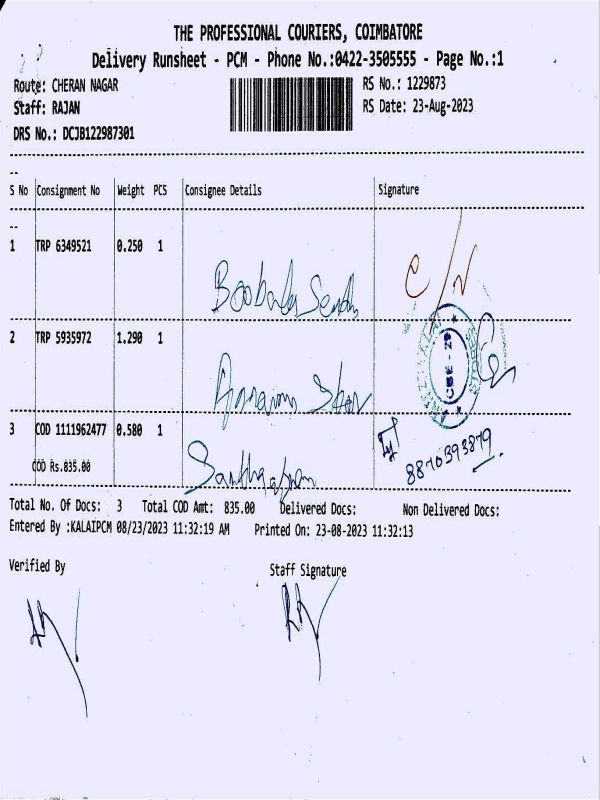 THE PROFESSIONAL COURIERS, COIMBATORE
Delivery Runsheet - PCM - Phone No.:0422-3505555 - Page No.:1
Route: CHERAN NAGAR RS No.: 1229873
Staff: RAJAN RS Date: 23-Aug-2023
DRS No.: DCJB122987301
--
S No Consignment No Weight PCS Consignee Details Signature
--
1 TRP 6349521 0.250 1
2 TRP 5935972 1.290 1
CBE - 29
3 COD 1111962477 0.580 1
8870393879
COD Rs.835.00
Total No. Of Docs: 3 Total COD Amt: 835.00 Delivered Docs: Non Delivered Docs:
Entered By :KALAIPCM 08/23/2023 11:32:19 AM Printed On: 23-08-2023 11:32:13
Verified By Staff Signature